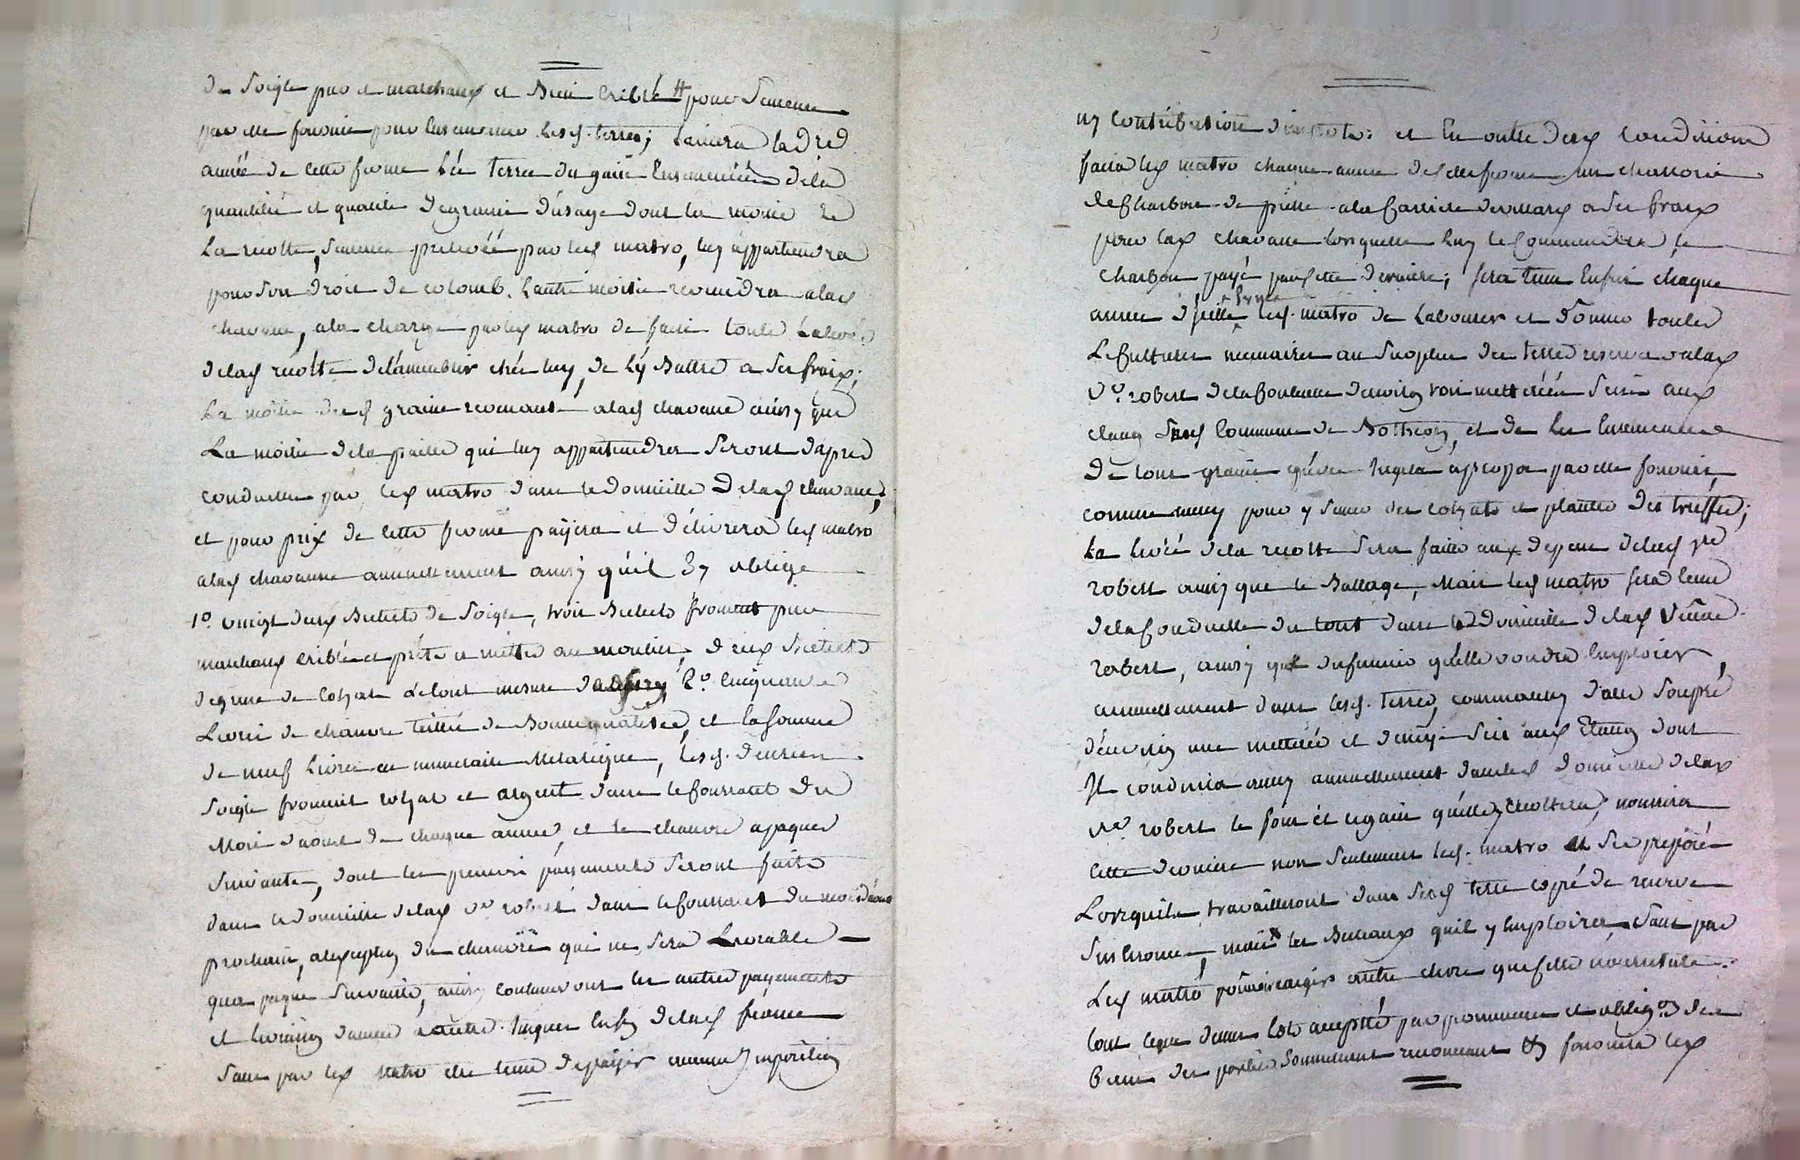 de Soigle pur et marchand et Bien criblé # pour Semence
par elle fournie pour Ensemencer lesd. terres; Laissera la der.
année de cette ferme Les terres du gain Ensemencées de la
quantité et qualité de graine d'usage dont la moitié de
La recolte, Semence prelevée par led matro, luy appartiendra
pour son droit de colomb. Lautre moitié reviendra alad
chavane, ala charge par led matro de faire toute La levée
de lad récolte de l'ameublir chés luy, de la Battre a Ses fraix;
La moitié desd graine revenant alad chavane ainsy que
La moitié de la paille qui luy appartiendra Seront d'apres
conduites par led matro dans le domicille de lad chavane;
et pour prix de cette ferme payera et délivrera led matro
alad chavanne annuellement ainsy qu'il Sy oblige
1o. vingt deux Bichets de Soigle, trois Bichets froment pur
marchand criblé et prêts a mettre au moulin, deux Bichets
de graine de colzat le tout mesure 2o. cinquante
Livres de chanvre teillié de Bonne qualitée, et la somme
de neuf Livres en numeraire Metalique, lesd. denrées
Soigle froment colzat et argent dans le courrant du
Mois d'aoust de chaque année, et le chanvre a paques
Suivante, dont les premiers payements Seront faits
dans le domicille de lad ve robert dans le courrant du mois d'aoust
prochain, alexeption du chanvre qui ne sera Livrable
qua paque Suivante, ainsy continueront les autres payements
et d'année autre jusques lafin de lad ferme
Sans par led matro etre tenu de payer aucune Imposition
ny contribution directe; et En outre desd conditions
faira led matro chaque année de cette ferme un charroir
de Charbon de pierre ala Carriere a Ses fraix
pour lad chavane lorsquelle luy le Commandera, le
charbon payé par cette derniere; Sera tenu Enfin chaque
année led. matro de Labourer et donner toutes
Les Cultures necessaires au Surplus des terres reservées alad
Ve. robert de la Contenue d'environ trois metterées Scises aux
etang Sud Commune de Bothéon, et de les Ensemencer
De tout graine par elle fournie,
comme aussy pour y Semer des colzats et planter des truffes;
La levée de la recolte Sera faite aux depens de lad ve
robert ainsy que le Battage, Mais led matro sera tenu
de la Conduitte du tout dans le domicille de lad veuve
robert, ainsy que du fumier qu'elle voudra Employer
annuellement dans lesd. terres,
d'environ une metterée et demye Scis aux Etang dont
Il conduira aussy annuellement dans led domicille de lad
ve robert le foin et regain qu'elle y recoltera; nourrira
cette derniere non Seulement led. matro et Ses preposés
Lorsquils travailleront dans Sesd terre et pré de reserve
mais les Bestiaux qu'il y Employera, Sans par
Led matro pouvoir exiger autre chose que cette nourriture.
tout ce que dessus Eté accepté par promesse et obligon. de
biens des parties Soumettant renonçant led